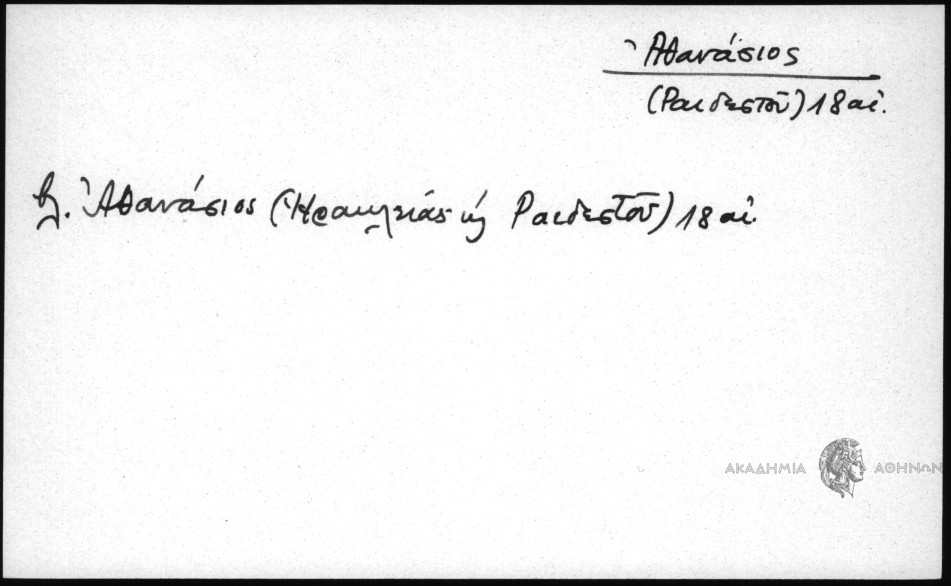 Ἀθανάσιος
(Ραιδεστοῦ) 18 αἰ.
βλ. Ἀθανάσιος (Ἡρακλείας κ Ραιδεστοῦ) 18 αἰ.
ΑΚΑΔΗΜΙΑ ΑΘΗΝΩΝ